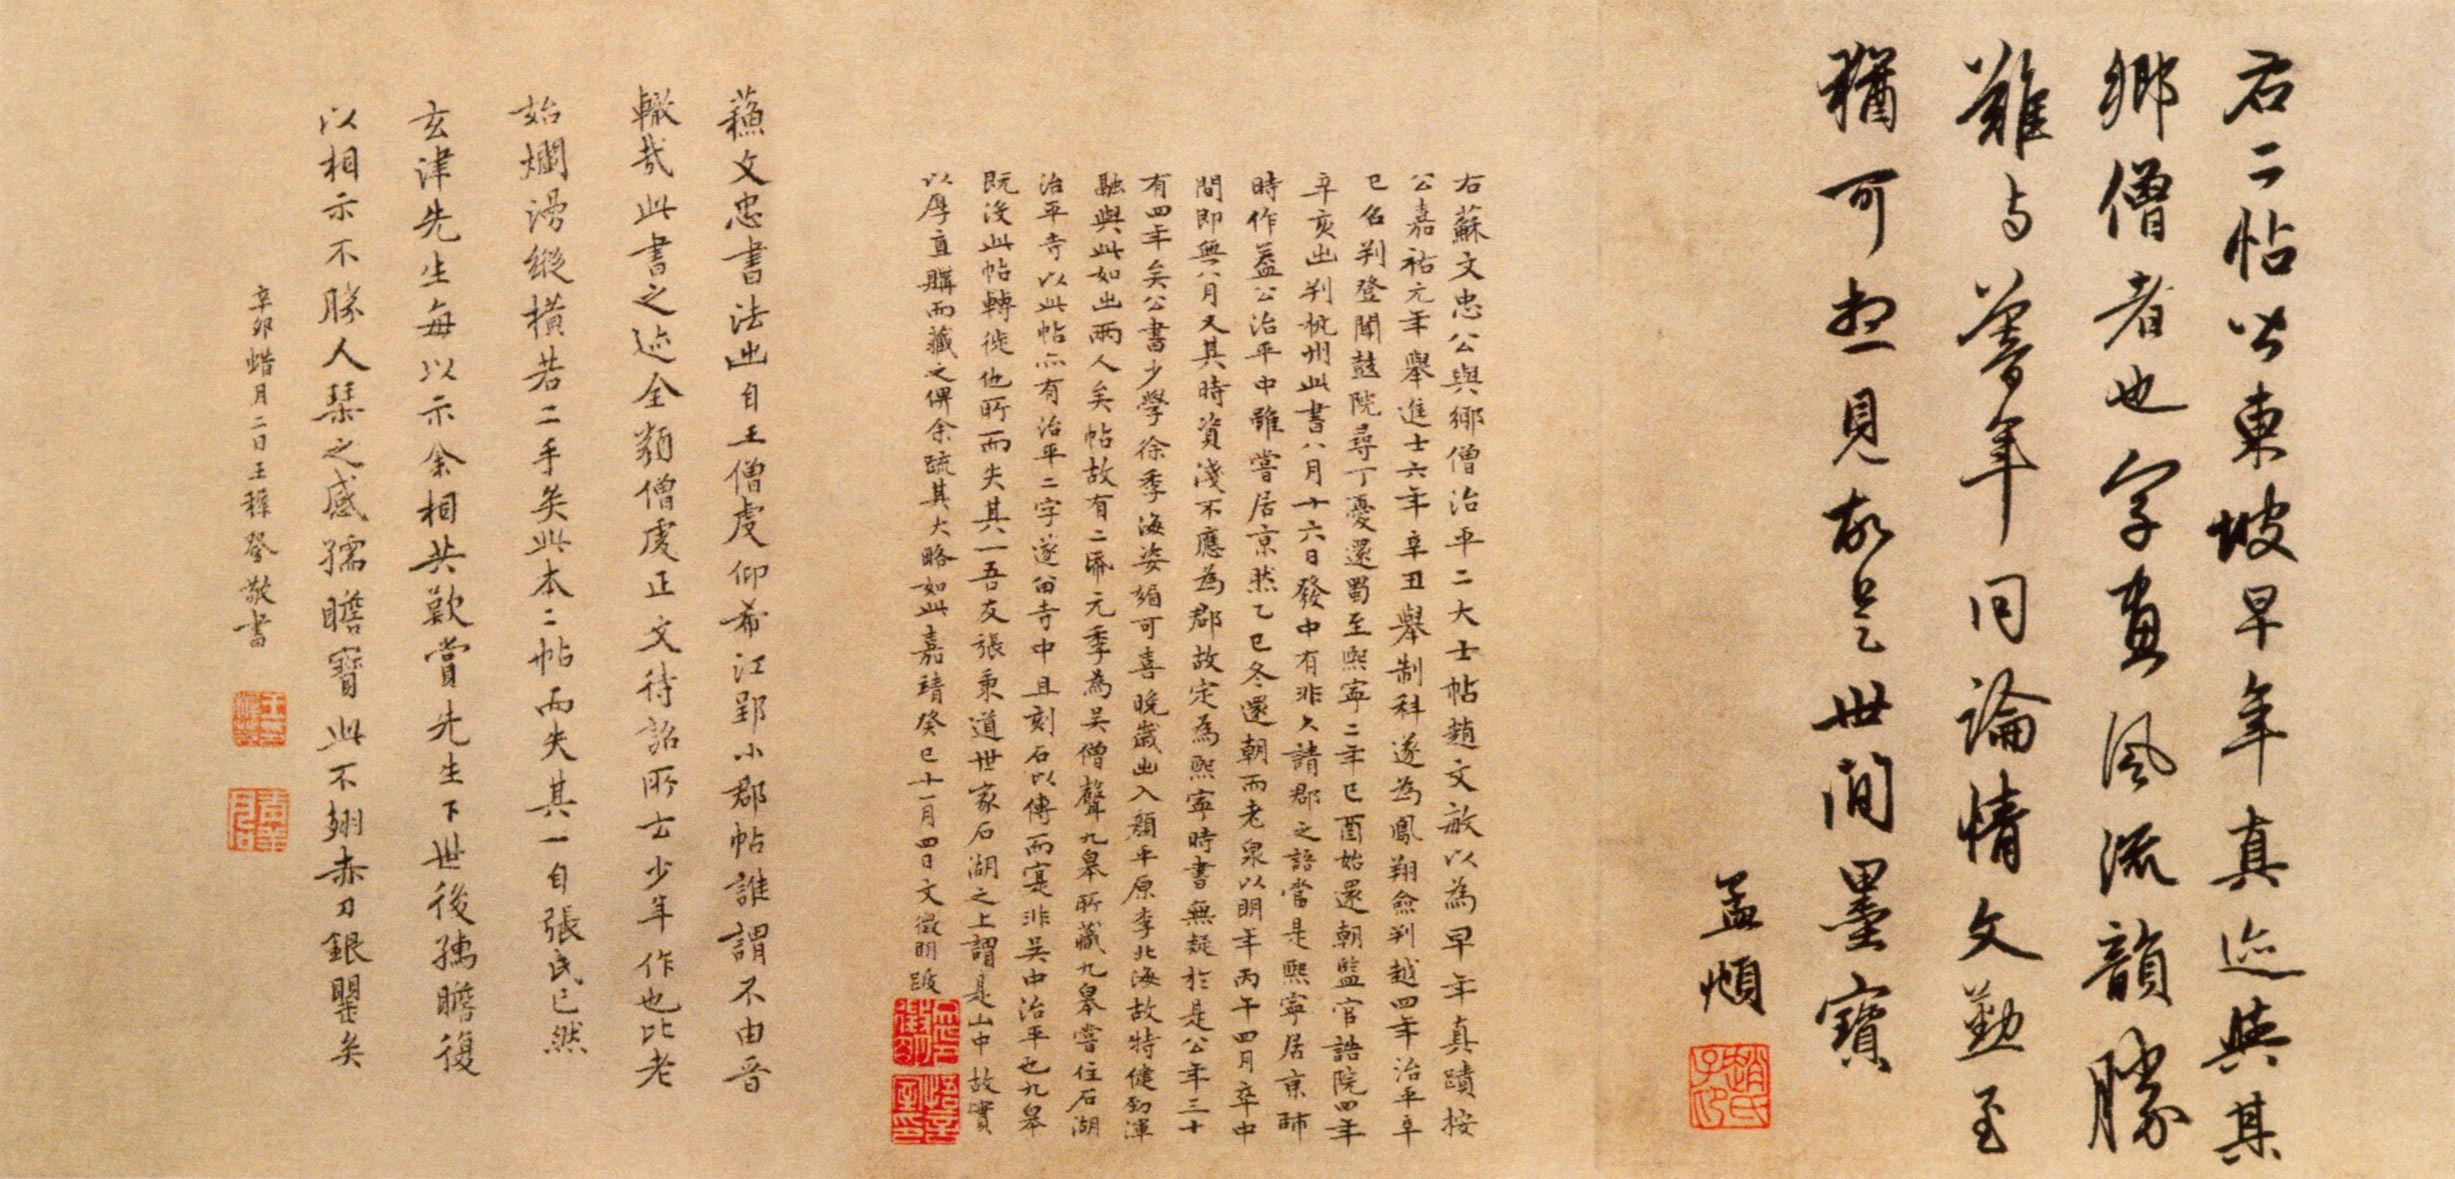 右二帖皆東坡早年真迹與其
鄉僧者也字畫風流韻勝
難与暮年同論情文勤至
猶可想見故是世間墨寶
孟頫
趙氏子昂
右蘇文忠公與鄉僧治平二大士帖趙文敏以為早年真蹟按
公嘉祐元年舉進士六年辛丑舉制科遂為鳳翔僉判越四年治平乙
巳召判登聞鼓院尋丁憂還蜀至熙寧二年己酉始還朝監官誥院四年
辛亥出判杭州此書八月十六日發中有非久請郡之語當是熙寧居京師
時作蓋公治平中雖嘗居京然乙巳冬還朝而老泉以明年丙午四月卒中
間即無八月又其時資淺不應為郡故定為熙寧時書無疑於是公年三十
有四年矣公書少學徐季海姿媚可喜晚歲出入顏平原李北海故特健勁渾
融與此如出兩人矣帖故有二帋元季為吴僧聲九皋所藏九皋嘗住石湖
治平寺以此帖亦有治平二字遂留寺中且刻石以傳而寔非吴中治平也九皋
既沒此帖轉徙他所而失其一吾友張秉道世家石湖之上謂是山中故實
以厚直購而藏之俾余疏其大略如此嘉靖癸巳十一月四日文徵明跋
蘓文忠書法出自王僧虔仰希江郢小郡帖誰謂不由晉
轍哉此書之迹全類僧虔正文待詔所云少年作也比老
始爛漫縱橫若二手矣此本二帖而失其一自張氏已然
玄津先生每以示余相共歎賞先生下世後孺瞻復
以相示不勝人琹之感孺瞻寶此不翅赤刀銀罌矣
辛卯蜡月二日王穉登敬書